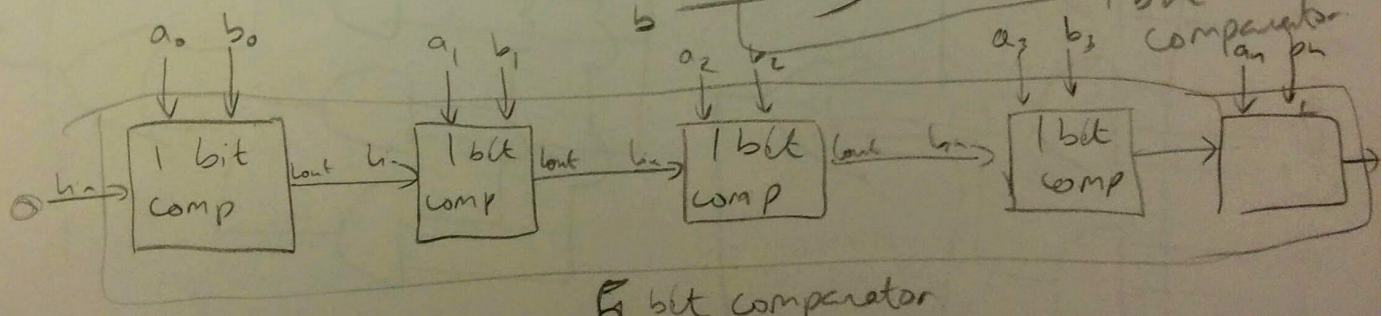 b
bit
comparator
a₀ b₀ a₁ b₁ a₂ b₂ a₃ b₃ aₙ bₙ
1 bit
comp
Lout
1 bit
comp
Lout
Lin
1 bit
comp
Lout
1 bit
comp
0 Lin
5 bit comparator